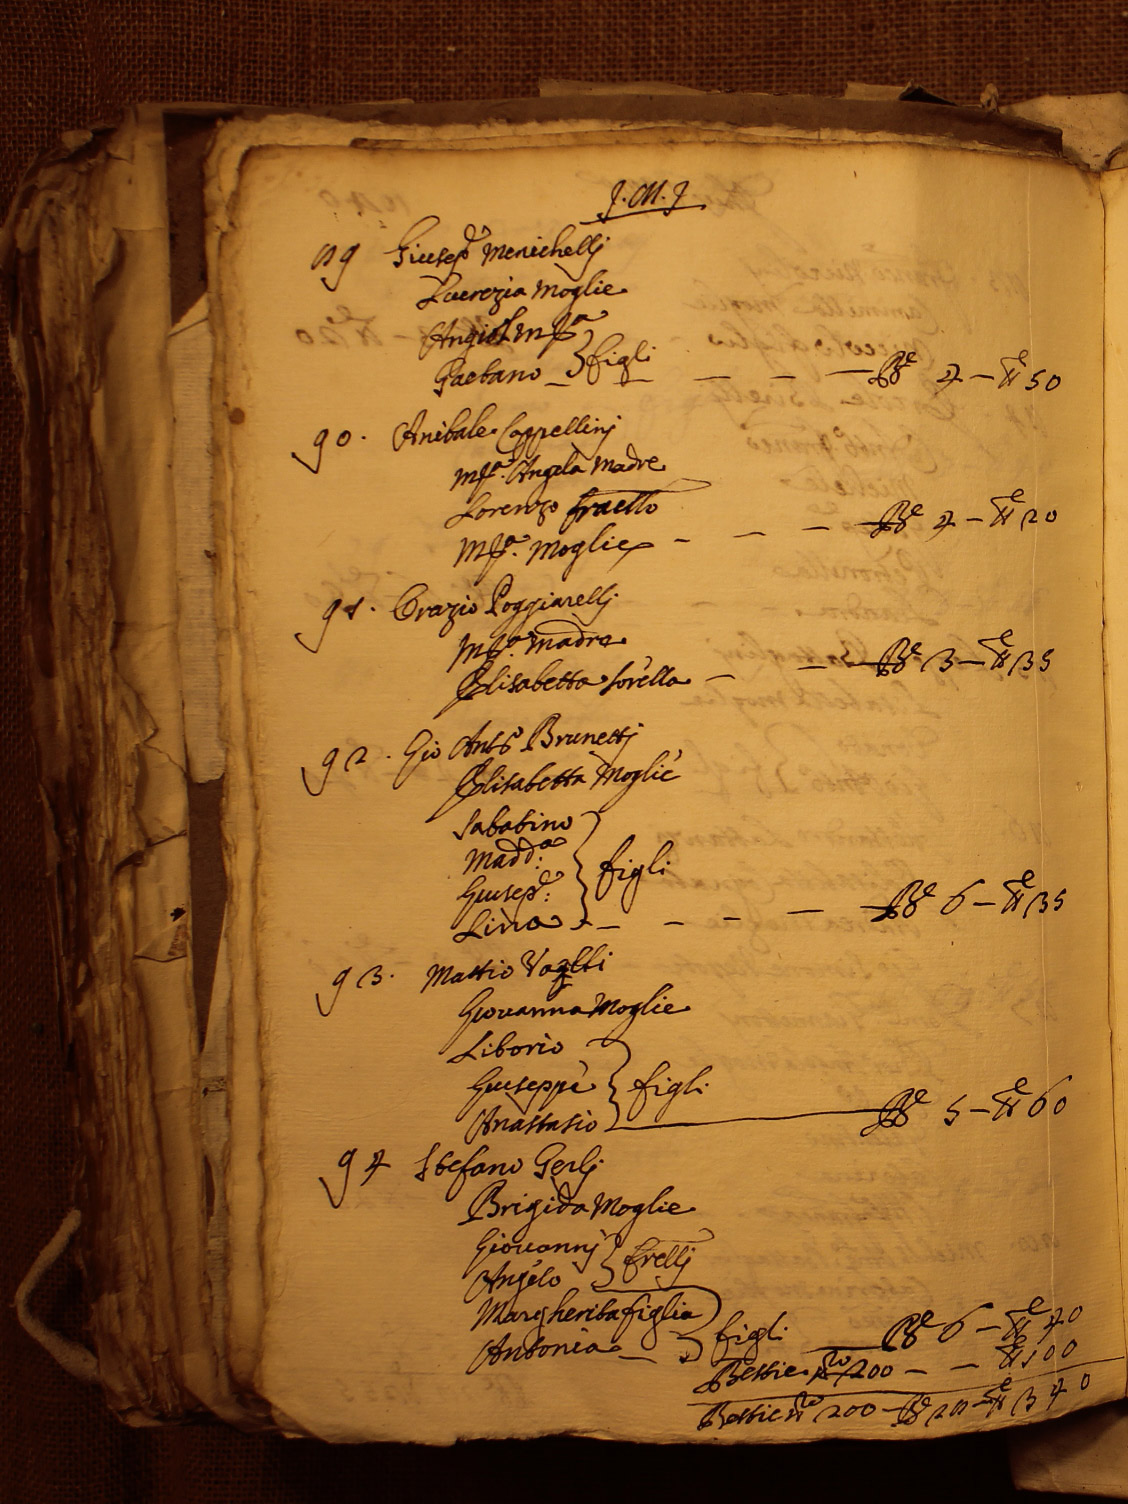 J. M. J
89 Giusep.e Menichellj
Lucrezia Moglie
Angiol M.a
Gaetano figli B.e 4 — N.e 50
90. Anibale Cappellinj
M.a Angela Madre
Lorenzo fraello
M.a Moglie B.e 4 — N.e 20
91. Orazio Poggiarellj
M.a Madre
Elisabetta Sorella B.e 3 — N.e 35
92. Gio Ant.o Brunettj
Elisabetta Moglie
Sabatino
Madd.a
Giusep.e figli
Lina B.e 6 — N.e 35
93. Mattio
Giovanna Moglie
Liborio
Giuseppe figli
Anastasio B.e 5 — N.e 60
94 Stefano Gerlj
Brigida Moglie
Giovannj
Angelo frellj
Margherita figlia
Antonia figli B.e 6 — N.e 40
Bestie N.o 200 — — N.e 100
Bestie N.o 200 — B.e 28 — N.e 340